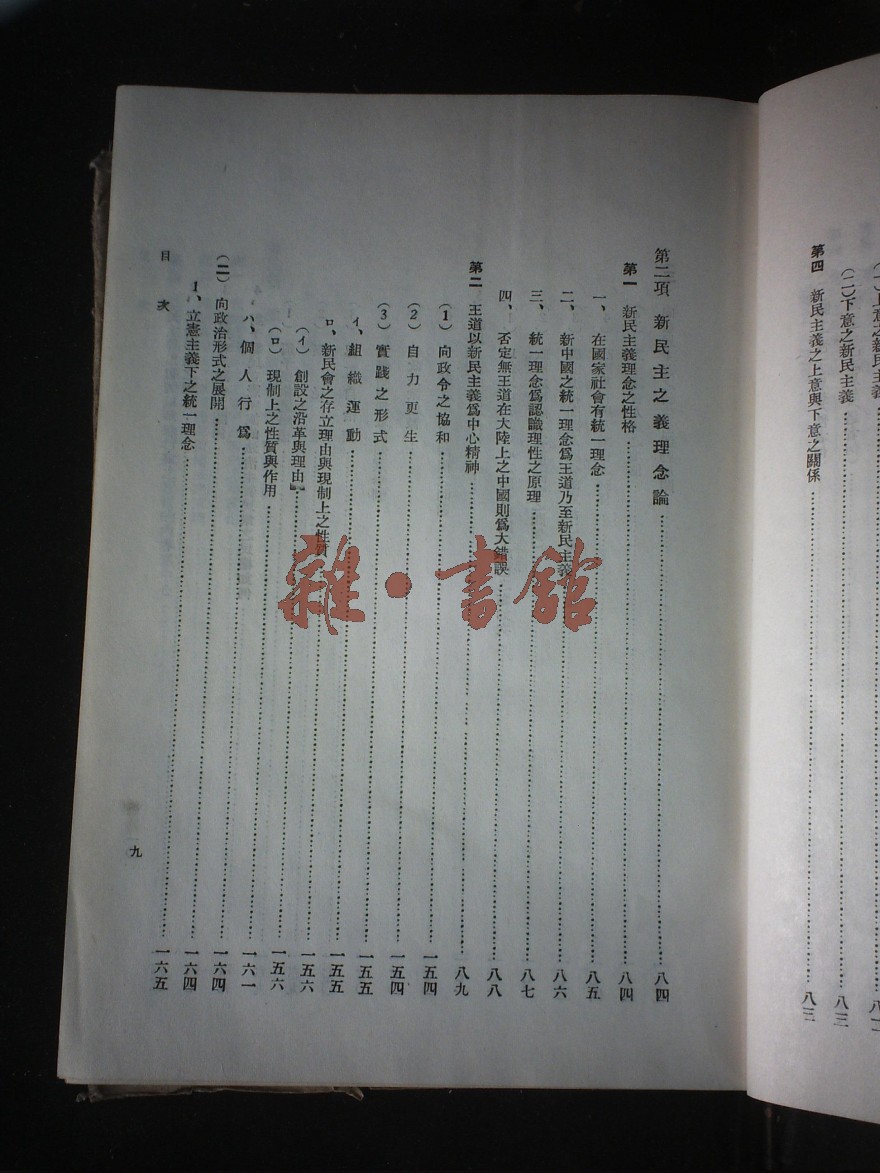 (二)下意之新民主義……八二
第四 新民主義之上意與下意之關係……八三
第二項 新民主之義理念論……八四
第一 新民主義理念之性格……八四
一、在國家社會有統一理念……八五
二、新中國之統一理念爲王道乃至新民主義……八六
三、統一理念爲認識理性之原理……八七
四、否定無王道在大陸上之中國則爲大錯誤……八八
第二 王道以新民主義爲中心精神……八九
(1)向政令之協和……一五四
(2)自力更生……一五四
(3)實踐之形式……一五五
イ、組織運動……一五五
ロ、新民會之存立理由與現制上之性質……一五六
(イ)創設之沿革與理由……一五六
(ロ)現制上之性質與作用……一六一
ハ、個人行爲……一六四
(二)向政治形式之展開……一六四
1、立憲主義下之統一理念……一六五
目次
九
雜·書館